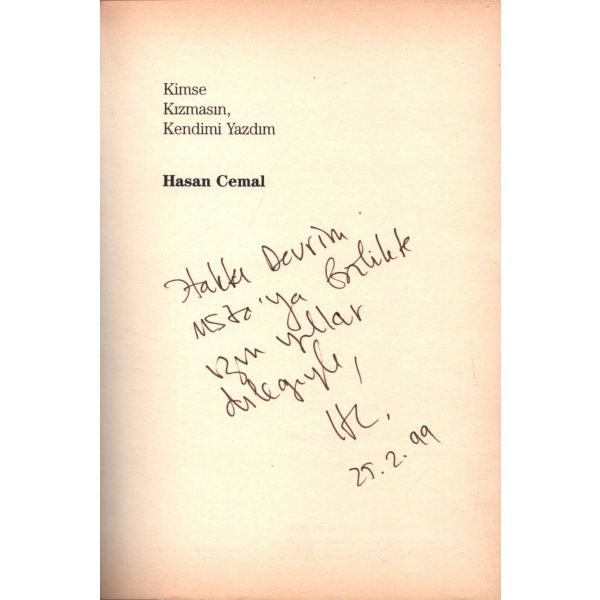 Kimse
Kızmasın,
Kendimi Yazdım
Hasan Cemal
Hakkı Devrim
usta'ya birlikte
uzun yıllar
dileğiyle,
HC,
25.2.99